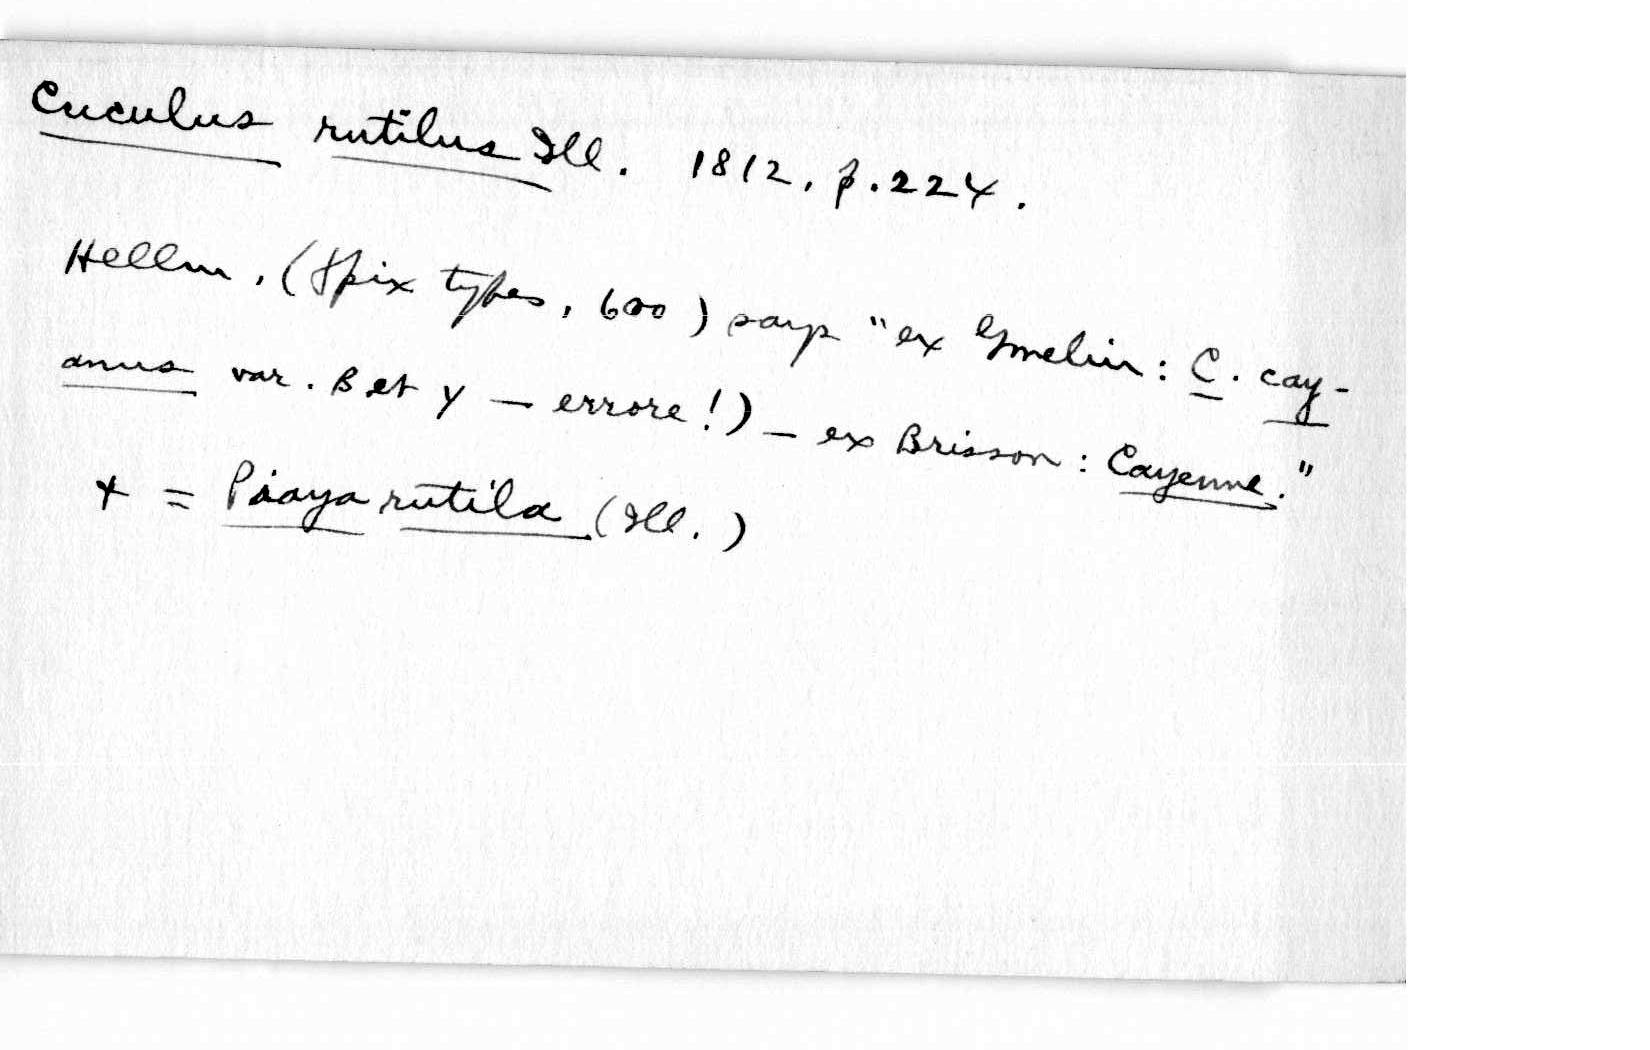 Cuculus rutilus Ill. 1812, p. 224.
Hellm. (Spix types, 600) says "ex Gmelin: C. cay-
anus var. B et γ — errore!) — ex Brisson: Cayenne."
+ = Piaya rutila (Ill.)